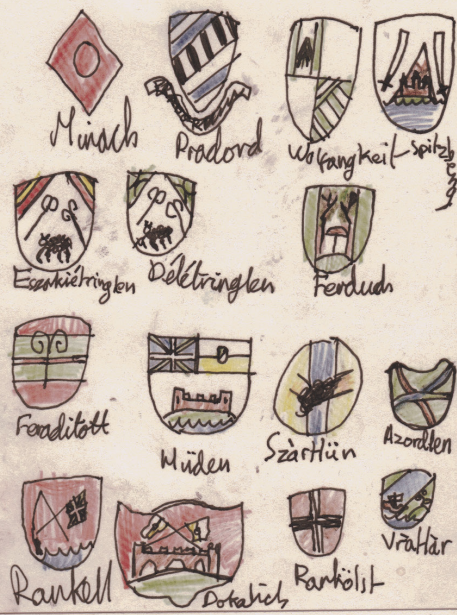 Minach
Pradord
Wolfangkeit-Spitzbergs
Eszakiétringlen
Délétringlen
Ferduds
Feraditott
Müden
Szàrtlün
Azordlen
Rankell
Dokalich
Rankölst
Vràtàr